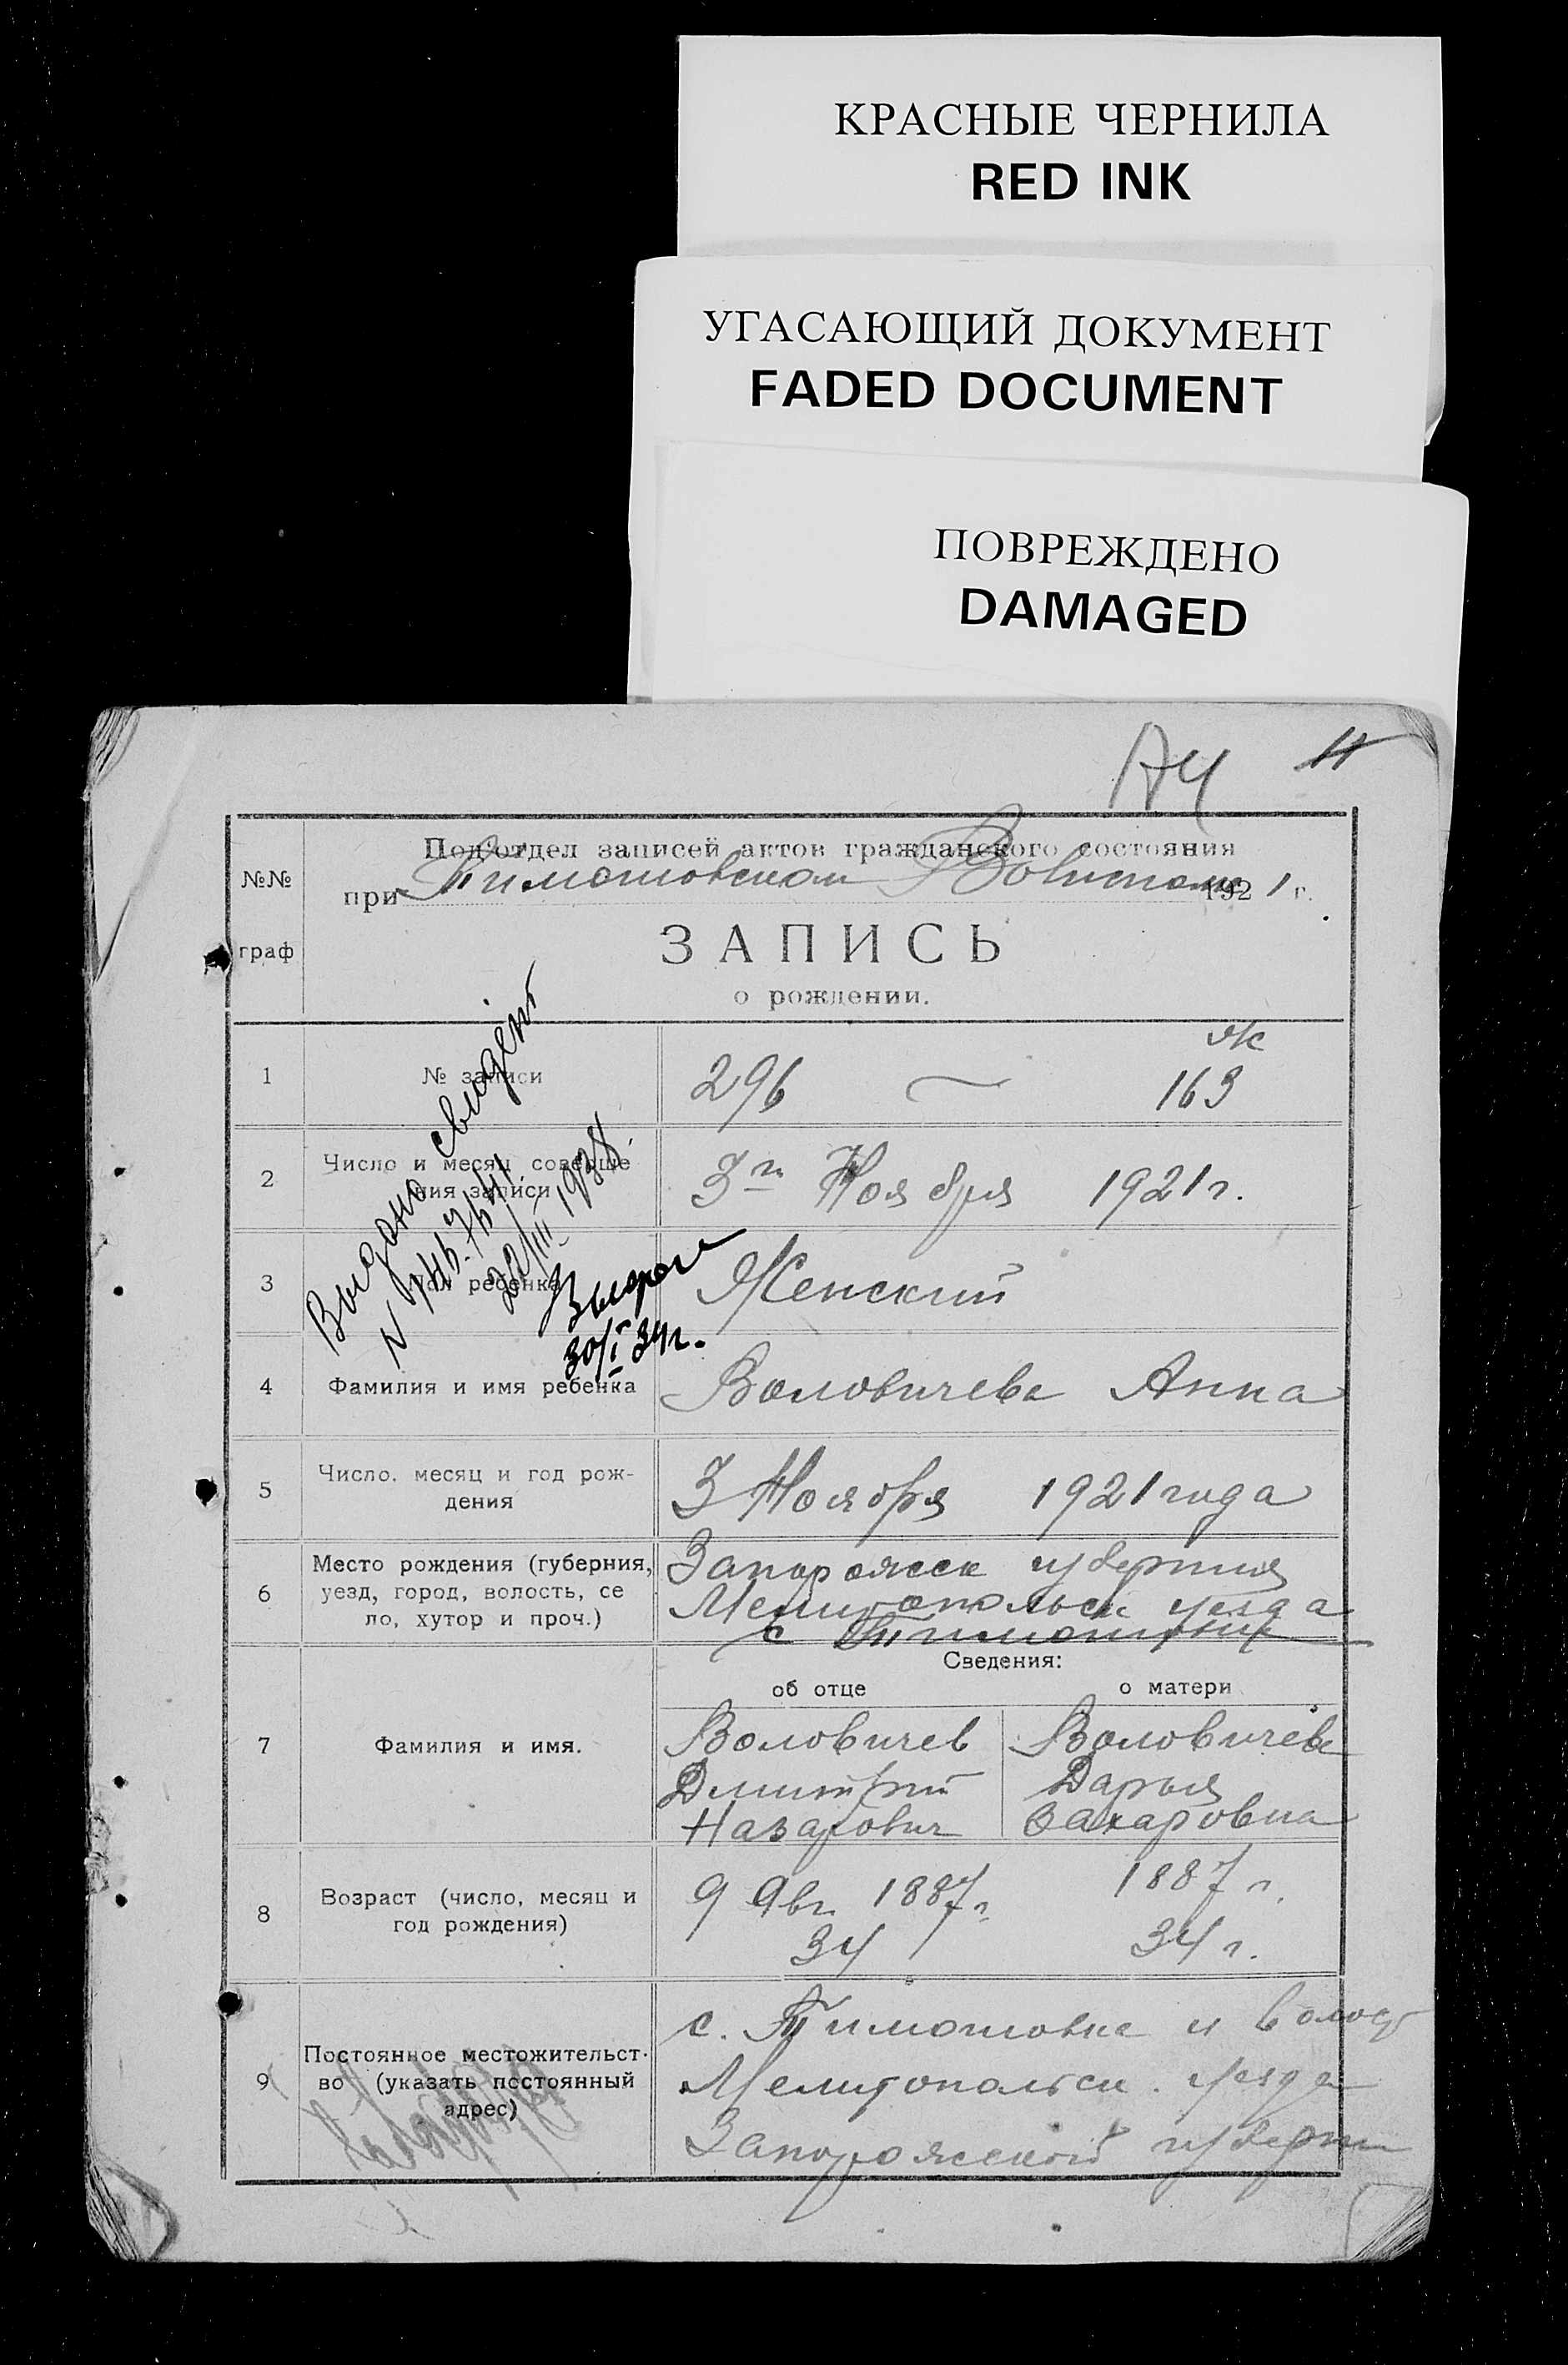 КРАСНЫЕ ЧЕРНИЛА
RED INK
УГАСАЮЩИЙ ДОКУМЕНТ
FADED DOCUMENT
ПОВРЕЖДЕНО
DAMAGED
11
№№ граф
Подотдел записей актов гражданского состояния
при Тимошовском Волисполк 1921 г.
ЗАПИСЬ
о рождении.
Выдано свидет
22/III 1938.
30/I 34г.
1 № записи 296 — 163
ж
2 Число и месяц соверше
ния записи 3го Ноября 1921 г.
3 Пол ребенка Женский
4 Фамилия и имя ребенка Воловичева Анна
5 Число, месяц и год рож-
дения 3 Ноября 1921 года
6 Место рождения (губерния,
уезд, город, волость, се
ло, хутор и проч.)
Запорожск губерния
Мелитопольск уезда
с Тимошовка
Сведения:
об отце о матери
7 Фамилия и имя.
Воловичев Воловичева
Дмитрий Дарья
Назарович Захаровна
8 Возраст (число, месяц и
год рождения)
9 Авг 1887г. 1887 г.
34 34 г.
9 Постоянное местожительст-
во (указать постоянный
адрес)
с. Тимошовка и волост
Мелитопольск. уезда
Запорожской губерни